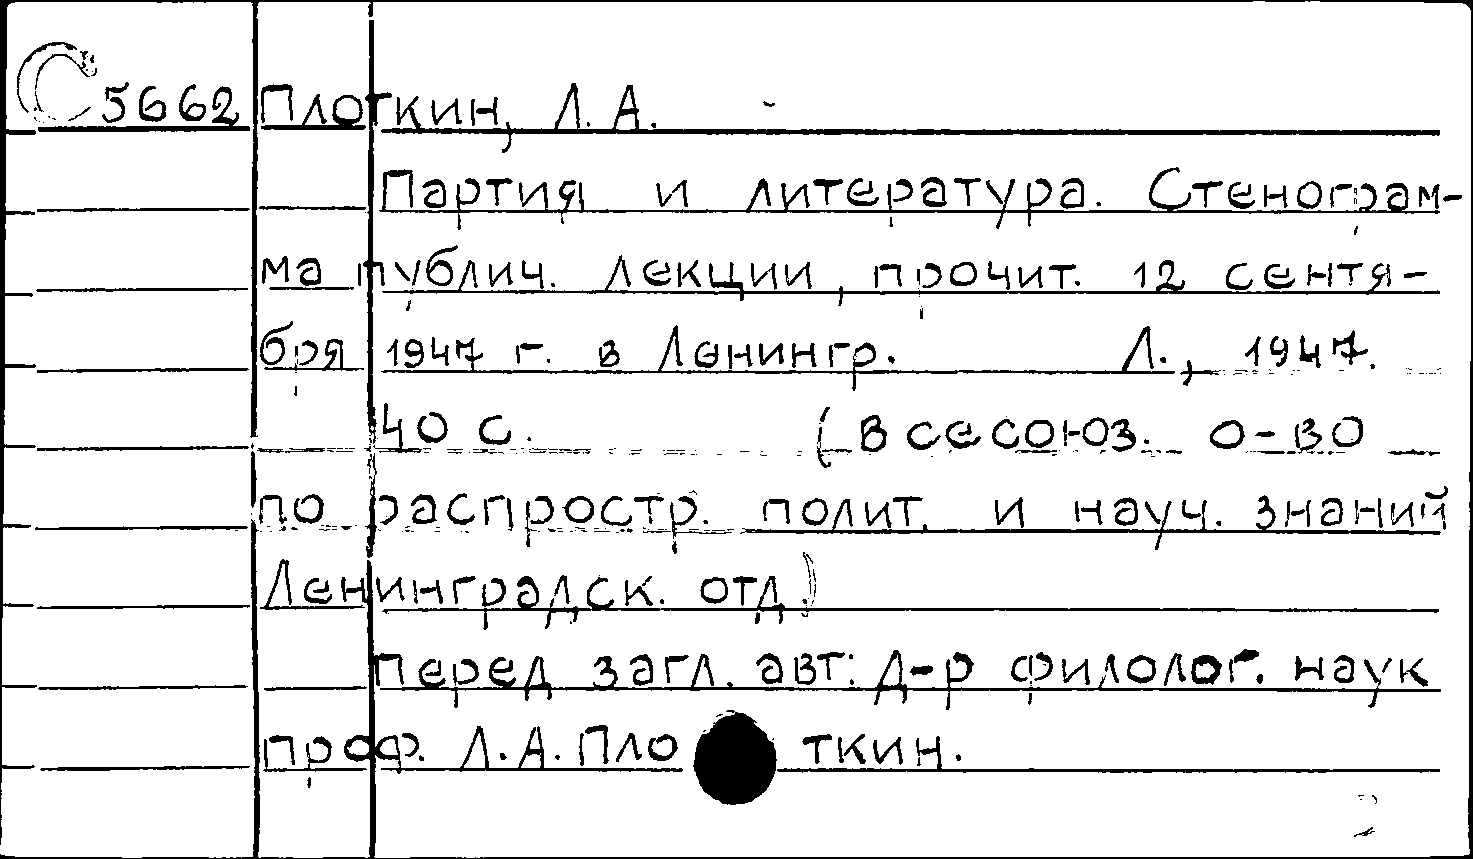 С 5662 Плоткин, Л. А.
Партия и литература. Стенограм-
ма публич. лекции, прочит. 12 сентя-
бря 1947 г. в Ленингр. Л., 1947.
40 с. (Всесоюз. о-во
по распростр. полит. и науч. знаний
Ленинградск. отд.)
Перед загл. авт: д-р филолог. наук
проф. Л. А. Плоткин.